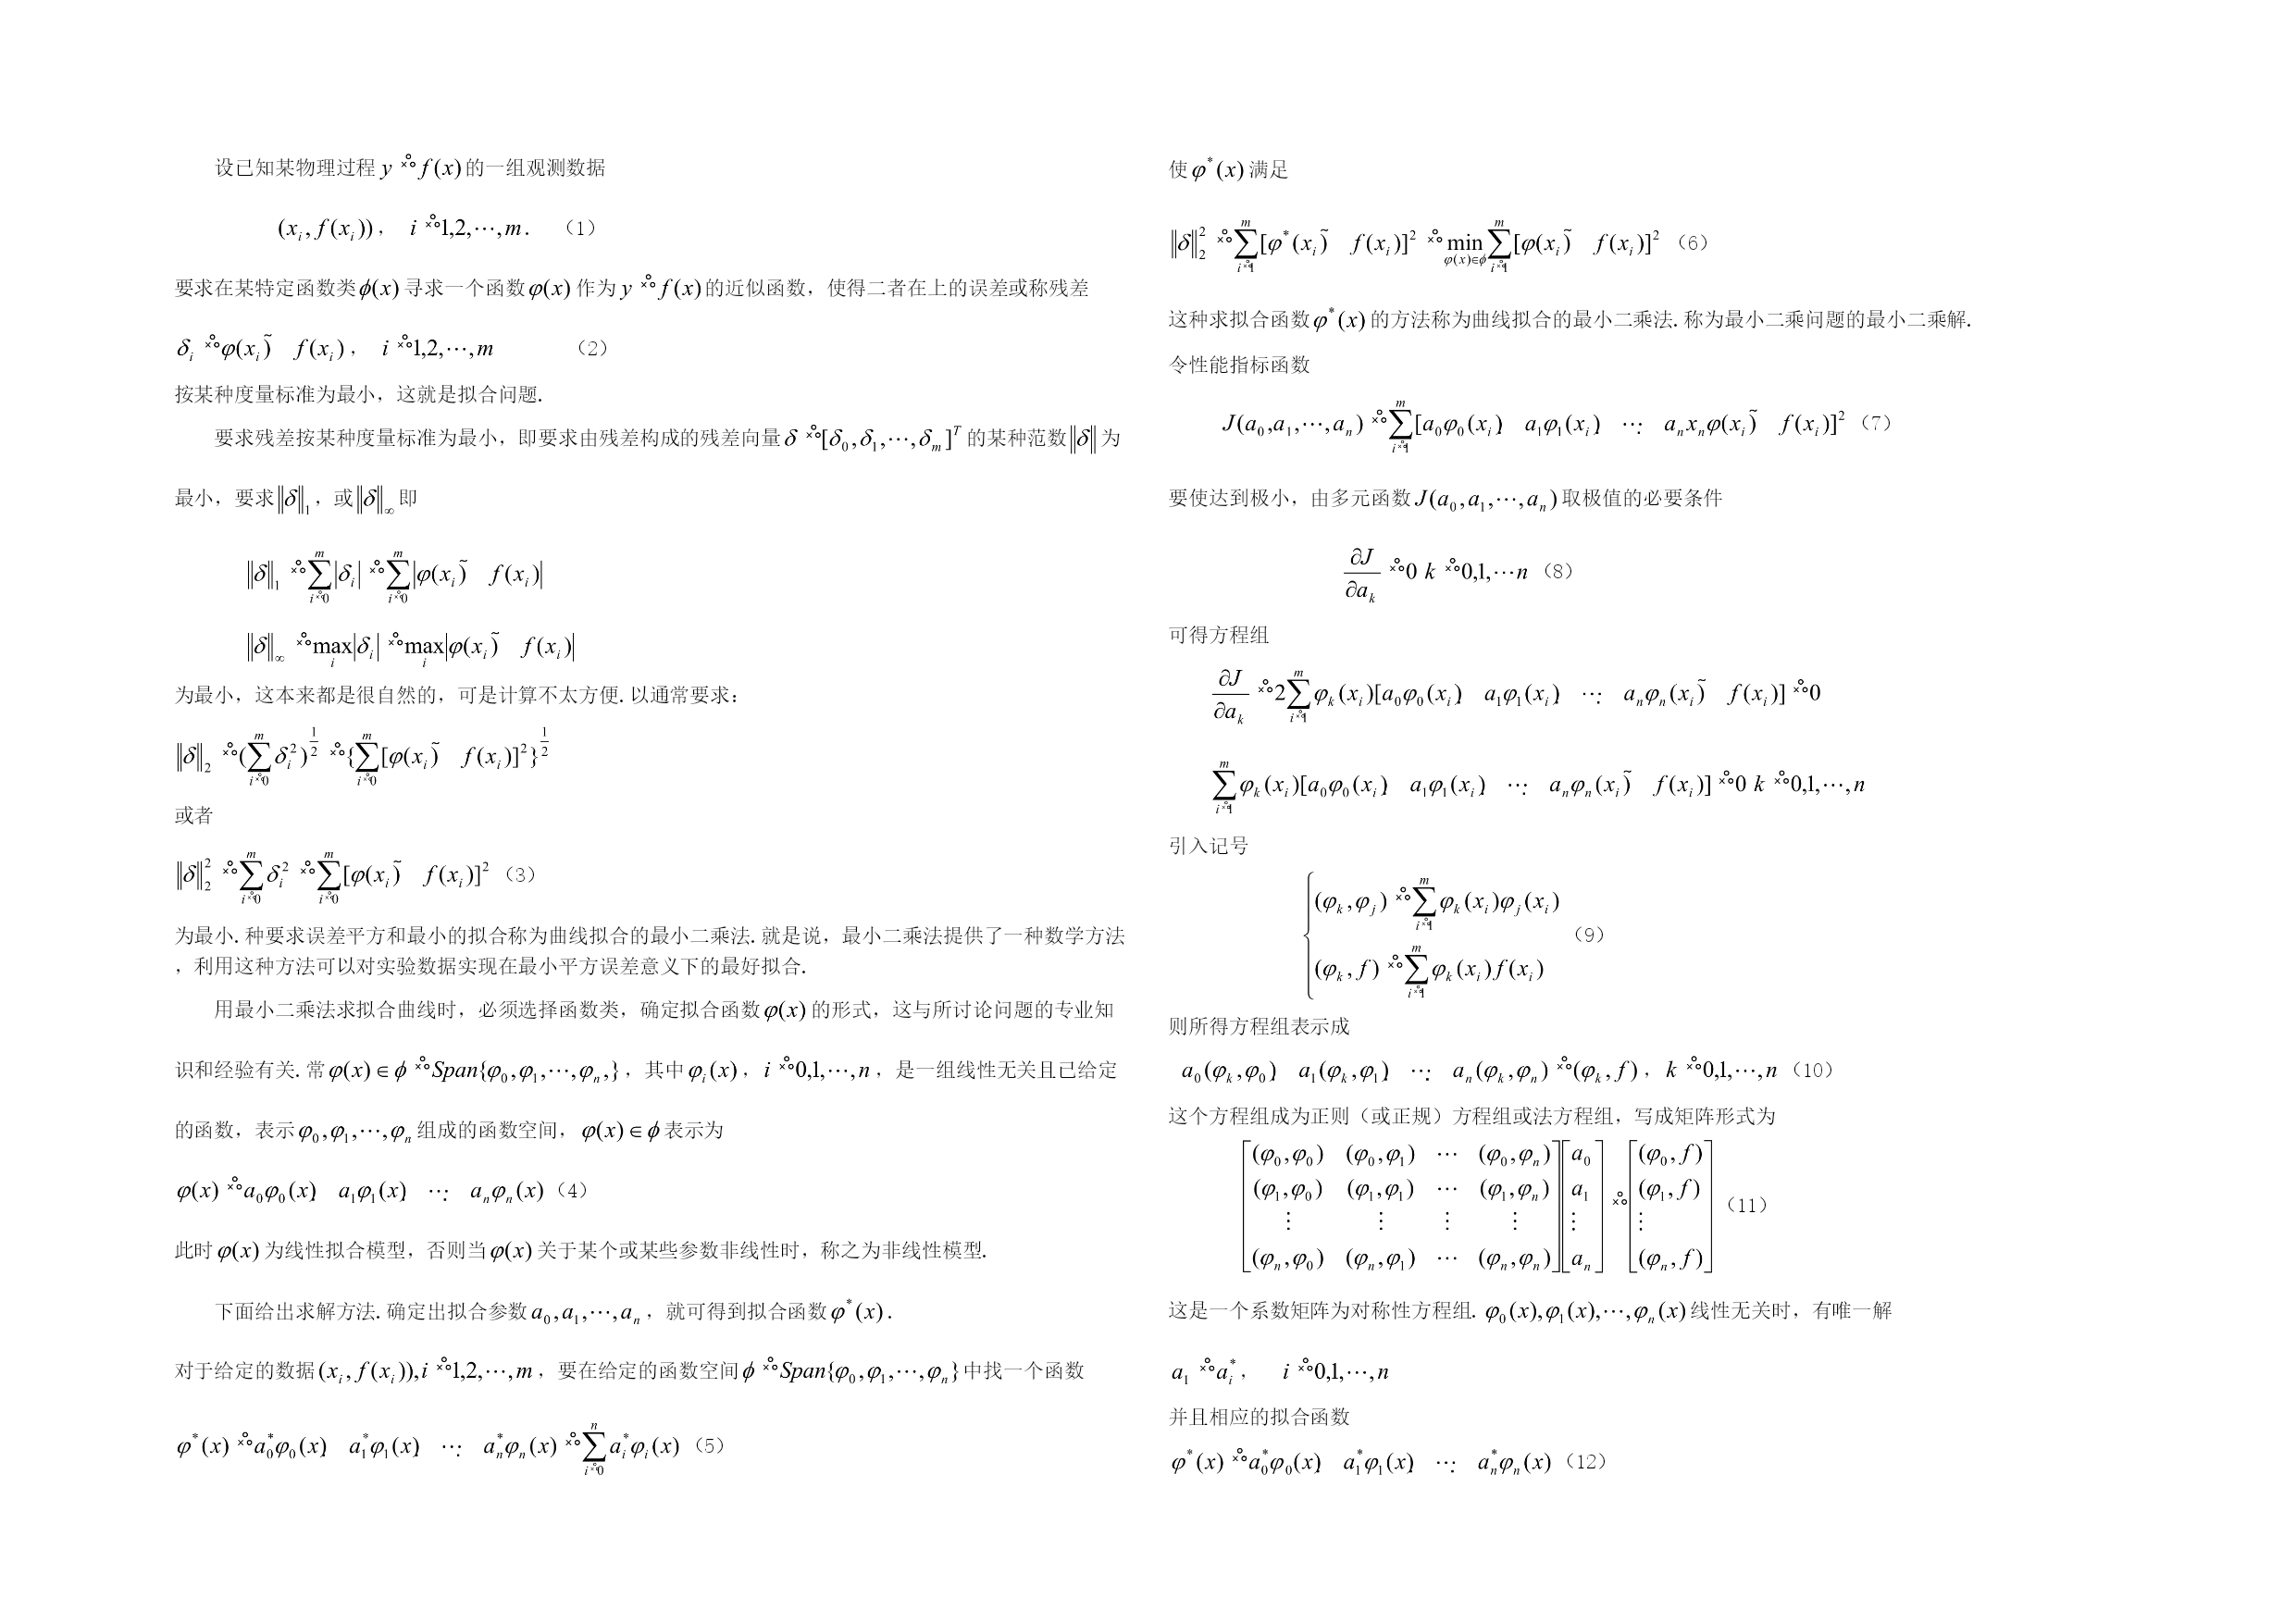 设已知某物理过程 y f(x) 的一组观测数据
(x_i, f(x_i)), i 1,2,⋯,m. （1）
要求在某特定函数类 ϕ(x) 寻求一个函数 φ(x) 作为 y f(x) 的近似函数，使得二者在上的误差或称残差
δ_i φ(x_i)~ f(x_i), i 1,2,⋯,m （2）
按某种度量标准为最小，这就是拟合问题.
要求残差按某种度量标准为最小，即要求由残差构成的残差向量 δ [δ_0,δ_1,⋯,δ_m]^T 的某种范数 ‖δ‖ 为
最小，要求 ‖δ‖_1，或 ‖δ‖_∞ 即
‖δ‖_1 ∑_{i 0}^m |δ_i| ∑_{i 0}^m |φ(x_i)~ f(x_i)|
‖δ‖_∞ max_i |δ_i| max_i |φ(x_i)~ f(x_i)|
为最小，这本来都是很自然的，可是计算不太方便.以通常要求：
‖δ‖_2 (∑_{i 0}^m δ_i^2)^{1/2} {∑_{i 0}^m [φ(x_i)~ f(x_i)]^2}^{1/2}
或者
‖δ‖_2^2 ∑_{i 0}^m δ_i^2 ∑_{i 0}^m [φ(x_i)~ f(x_i)]^2（3）
为最小.种要求误差平方和最小的拟合称为曲线拟合的最小二乘法.就是说，最小二乘法提供了一种数学方法
，利用这种方法可以对实验数据实现在最小平方误差意义下的最好拟合.
用最小二乘法求拟合曲线时，必须选择函数类，确定拟合函数 φ(x) 的形式，这与所讨论问题的专业知
识和经验有关.常 φ(x)∈ϕ Span{φ_0,φ_1,⋯,φ_n,}，其中 φ_i(x)，i 0,1,⋯,n，是一组线性无关且已给定
的函数，表示 φ_0,φ_1,⋯,φ_n 组成的函数空间，φ(x)∈ϕ 表示为
φ(x) a_0φ_0(x) a_1φ_1(x) ⋯ a_nφ_n(x)（4）
此时 φ(x) 为线性拟合模型，否则当 φ(x) 关于某个或某些参数非线性时，称之为非线性模型.
下面给出求解方法.确定出拟合参数 a_0,a_1,⋯,a_n，就可得到拟合函数 φ^*(x).
对于给定的数据 (x_i,f(x_i)),i 1,2,⋯,m，要在给定的函数空间 ϕ Span{φ_0,φ_1,⋯,φ_n} 中找一个函数
φ^*(x) a_0^*φ_0(x) a_1^*φ_1(x) ⋯ a_n^*φ_n(x) ∑_{i 0}^n a_i^*φ_i(x)（5）
使 φ^*(x) 满足
‖δ‖_2^2 ∑_{i 1}^m [φ^*(x_i)~ f(x_i)]^2 min_{φ(x)∈ϕ} ∑_{i 1}^m [φ(x_i)~ f(x_i)]^2（6）
这种求拟合函数 φ^*(x) 的方法称为曲线拟合的最小二乘法.称为最小二乘问题的最小二乘解.
令性能指标函数
J(a_0,a_1,⋯,a_n) ∑_{i 1}^m [a_0φ_0(x_i) a_1φ_1(x_i) ⋯ a_nx_nφ(x_i)~ f(x_i)]^2（7）
要使达到极小，由多元函数 J(a_0,a_1,⋯,a_n) 取极值的必要条件
∂J/∂a_k 0 k 0,1,⋯n（8）
可得方程组
∂J/∂a_k 2∑_{i 1}^m φ_k(x_i)[a_0φ_0(x_i) a_1φ_1(x_i) ⋯ a_nφ_n(x_i)~ f(x_i)] 0
∑_{i 1}^m φ_k(x_i)[a_0φ_0(x_i) a_1φ_1(x_i) ⋯ a_nφ_n(x_i)~ f(x_i)] 0 k 0,1,⋯,n
引入记号
(φ_k,φ_j) ∑_{i 1}^m φ_k(x_i)φ_j(x_i)
（9）
(φ_k,f) ∑_{i 1}^m φ_k(x_i)f(x_i)
则所得方程组表示成
a_0(φ_k,φ_0) a_1(φ_k,φ_1) ⋯ a_n(φ_k,φ_n) (φ_k,f)，k 0,1,⋯,n（10）
这个方程组成为正则（或正规）方程组或法方程组，写成矩阵形式为
(φ_0,φ_0) (φ_0,φ_1) ⋯ (φ_0,φ_n) a_0 (φ_0,f)
(φ_1,φ_0) (φ_1,φ_1) ⋯ (φ_1,φ_n) a_1 (φ_1,f)
⋮ ⋮ ⋮ ⋮ ⋮ ⋮ （11）
(φ_n,φ_0) (φ_n,φ_1) ⋯ (φ_n,φ_n) a_n (φ_n,f)
这是一个系数矩阵为对称性方程组. φ_0(x),φ_1(x),⋯,φ_n(x) 线性无关时，有唯一解
a_1 a_i^*， i 0,1,⋯,n
并且相应的拟合函数
φ^*(x) a_0^*φ_0(x) a_1^*φ_1(x) ⋯ a_n^*φ_n(x)（12）